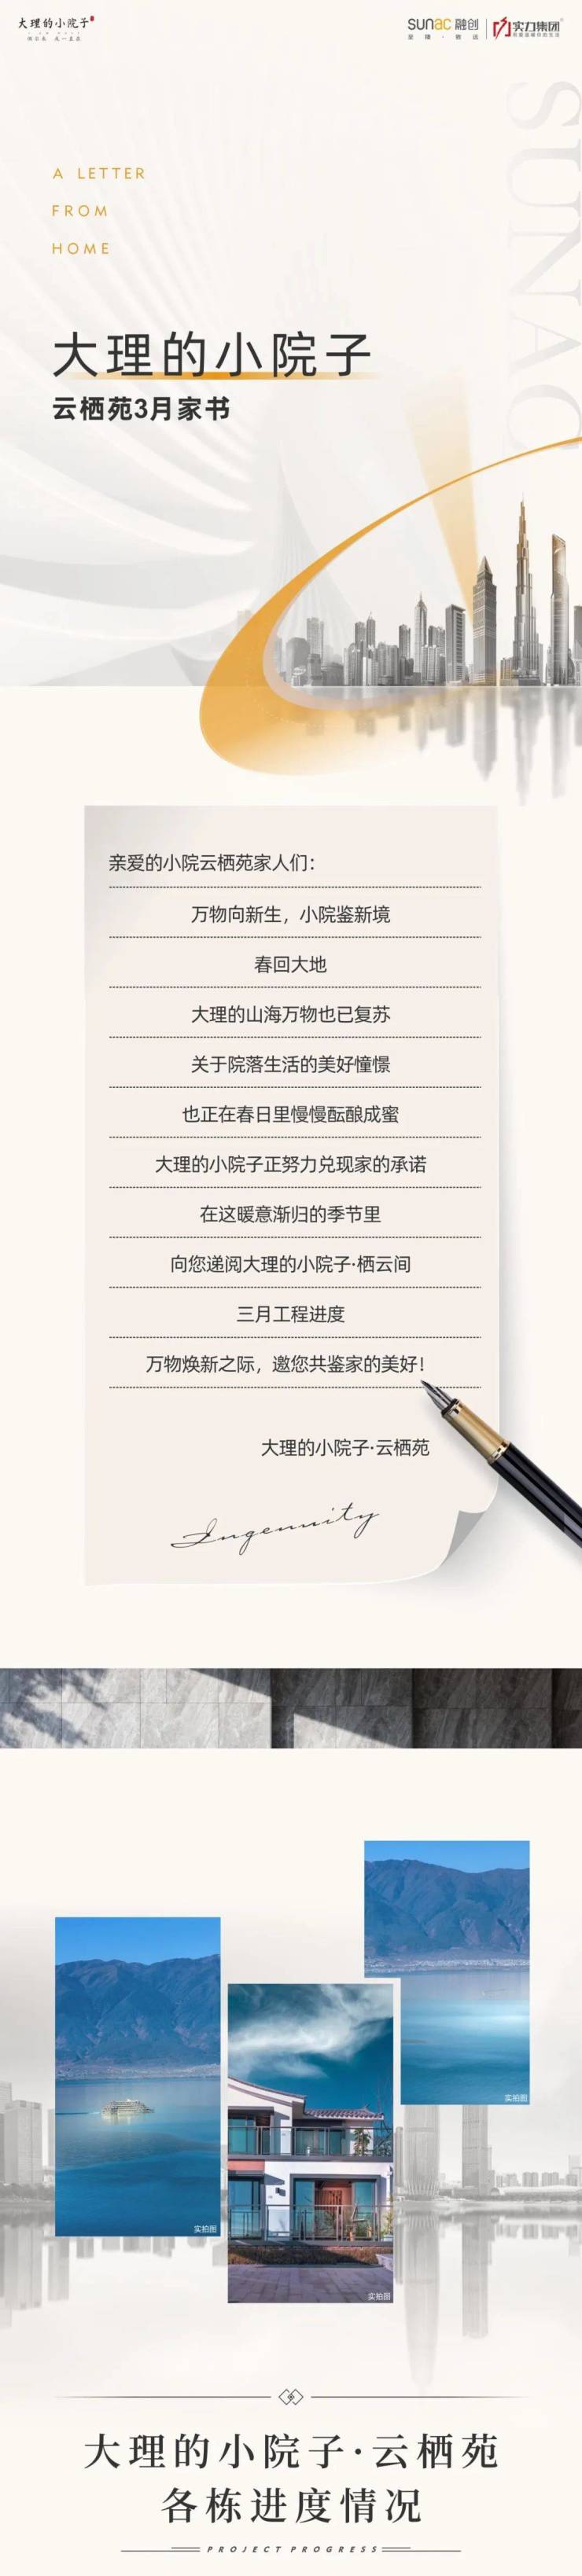 大理的小院子
sunac 融创
至臻·致远
实力集团
A LETTER
FROM
HOME
SUNAC
大理的小院子
云栖苑3月家书
亲爱的小院云栖苑家人们：
万物向新生，小院鉴新境
春回大地
大理的山海万物也已复苏
关于院落生活的美好憧憬
也正在春日里慢慢酝酿成蜜
大理的小院子正努力兑现家的承诺
在这暖意渐归的季节里
向您递阅大理的小院子·栖云间
三月工程进度
万物焕新之际，邀您共鉴家的美好！
大理的小院子·云栖苑
Ingenuity
实拍图
实拍图
实拍图
大理的小院子·云栖苑
各栋进度情况
PROJECT PROGRESS